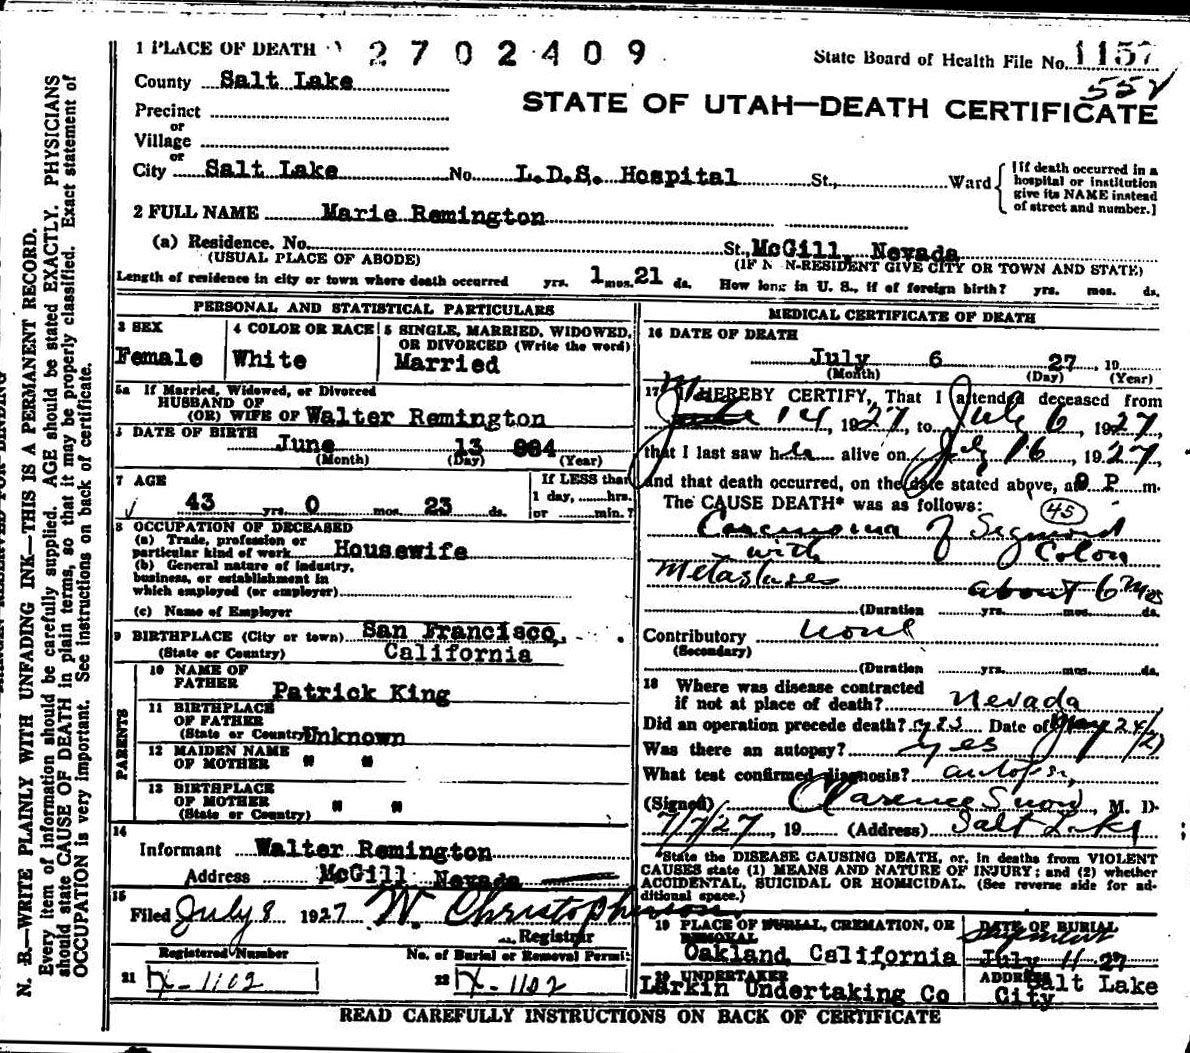 1 PLACE OF DEATH 2702409
State Board of Health File No. 1157
552
County Salt Lake
STATE OF UTAH—DEATH CERTIFICATE
Precinct
or
Village
or
City Salt Lake No. L.D.S. Hospital St., Ward
[If death occurred in a
hospital or institution
give its NAME instead
of street and number.]
2 FULL NAME Marie Remington
(a) Residence. No. St., McGill, Nevada
(USUAL PLACE OF ABODE) (IF NON-RESIDENT GIVE CITY OR TOWN AND STATE)
Length of residence in city or town where death occurred yrs. 1 mos. 21 ds. How long in U. S., if of foreign birth? yrs. mos. ds.
PERSONAL AND STATISTICAL PARTICULARS
3 SEX
Female
4 COLOR OR RACE
White
5 SINGLE, MARRIED, WIDOWED,
OR DIVORCED (Write the word)
Married
5a If Married, Widowed, or Divorced
HUSBAND OF
(OR) WIFE OF Walter Remington
DATE OF BIRTH June 13 884
(Month) (Day) (Year)
7 AGE
43 yrs. 0 mos. 23 ds.
If LESS than
1 day, hrs.
or min.?
8 OCCUPATION OF DECEASED
(a) Trade, profession or
particular kind of work Housewife
(b) General nature of industry,
business, or establishment in
which employed (or employer)
(c) Name of Employer
9 BIRTHPLACE (City or town) San Francisco,
(State or Country) California
PARENTS
10 NAME OF
FATHER Patrick King
11 BIRTHPLACE
OF FATHER
(State or Country) Unknown
12 MAIDEN NAME
OF MOTHER " "
13 BIRTHPLACE
OF MOTHER " "
(State or Country)
14
Informant Walter Remington
Address McGill Nevada
15
Filed July 8 1927 W. Christopherson
Registrar
Registered Number
21 X-1102
No. of Burial or Removal Permit
22 X-1102
MEDICAL CERTIFICATE OF DEATH
16 DATE OF DEATH
July 6 27, 19
(Month) (Day) (Year)
17 I HEREBY CERTIFY, That I attended deceased from
14, 1927, to July 6, 1927
that I last saw her alive on July 16, 1927,
and that death occurred, on the date stated above, at 9 P m.
The CAUSE DEATH* was as follows: 45
Carcinoma of Sigmoid
with Colon
Metastases about 6 mos
(Duration yrs. mos. ds.
Contributory none
(Secondary)
(Duration yrs. mos. ds.
18 Where was disease contracted
if not at place of death? Nevada
Did an operation precede death? yes Date of May 24/27
Was there an autopsy? yes
What test confirmed diagnosis? autopsy
(Signed) Clarence Snow, M. D.
7/7/27, 19 (Address) Salt Lake
*State the DISEASE CAUSING DEATH, or, in deaths from VIOLENT
CAUSES state (1) MEANS AND NATURE OF INJURY; and (2) whether
ACCIDENTAL, SUICIDAL OR HOMICIDAL. (See reverse side for ad-
ditional space.)
19 PLACE OF BURIAL, CREMATION, OR
REMOVAL
Oakland, California
DATE OF BURIAL
July 11 27
20 UNDERTAKER
Larkin Undertaking Co
ADDRESS Salt Lake
City
READ CAREFULLY INSTRUCTIONS ON BACK OF CERTIFICATE
N. B.—WRITE PLAINLY WITH UNFADING INK—THIS IS A PERMANENT RECORD.
Every item of information should be carefully supplied. AGE should be stated EXACTLY. PHYSICIANS
should state CAUSE OF DEATH in plain terms, so that it may be properly classified. Exact statement of
OCCUPATION is very important. See instructions on back of certificate.